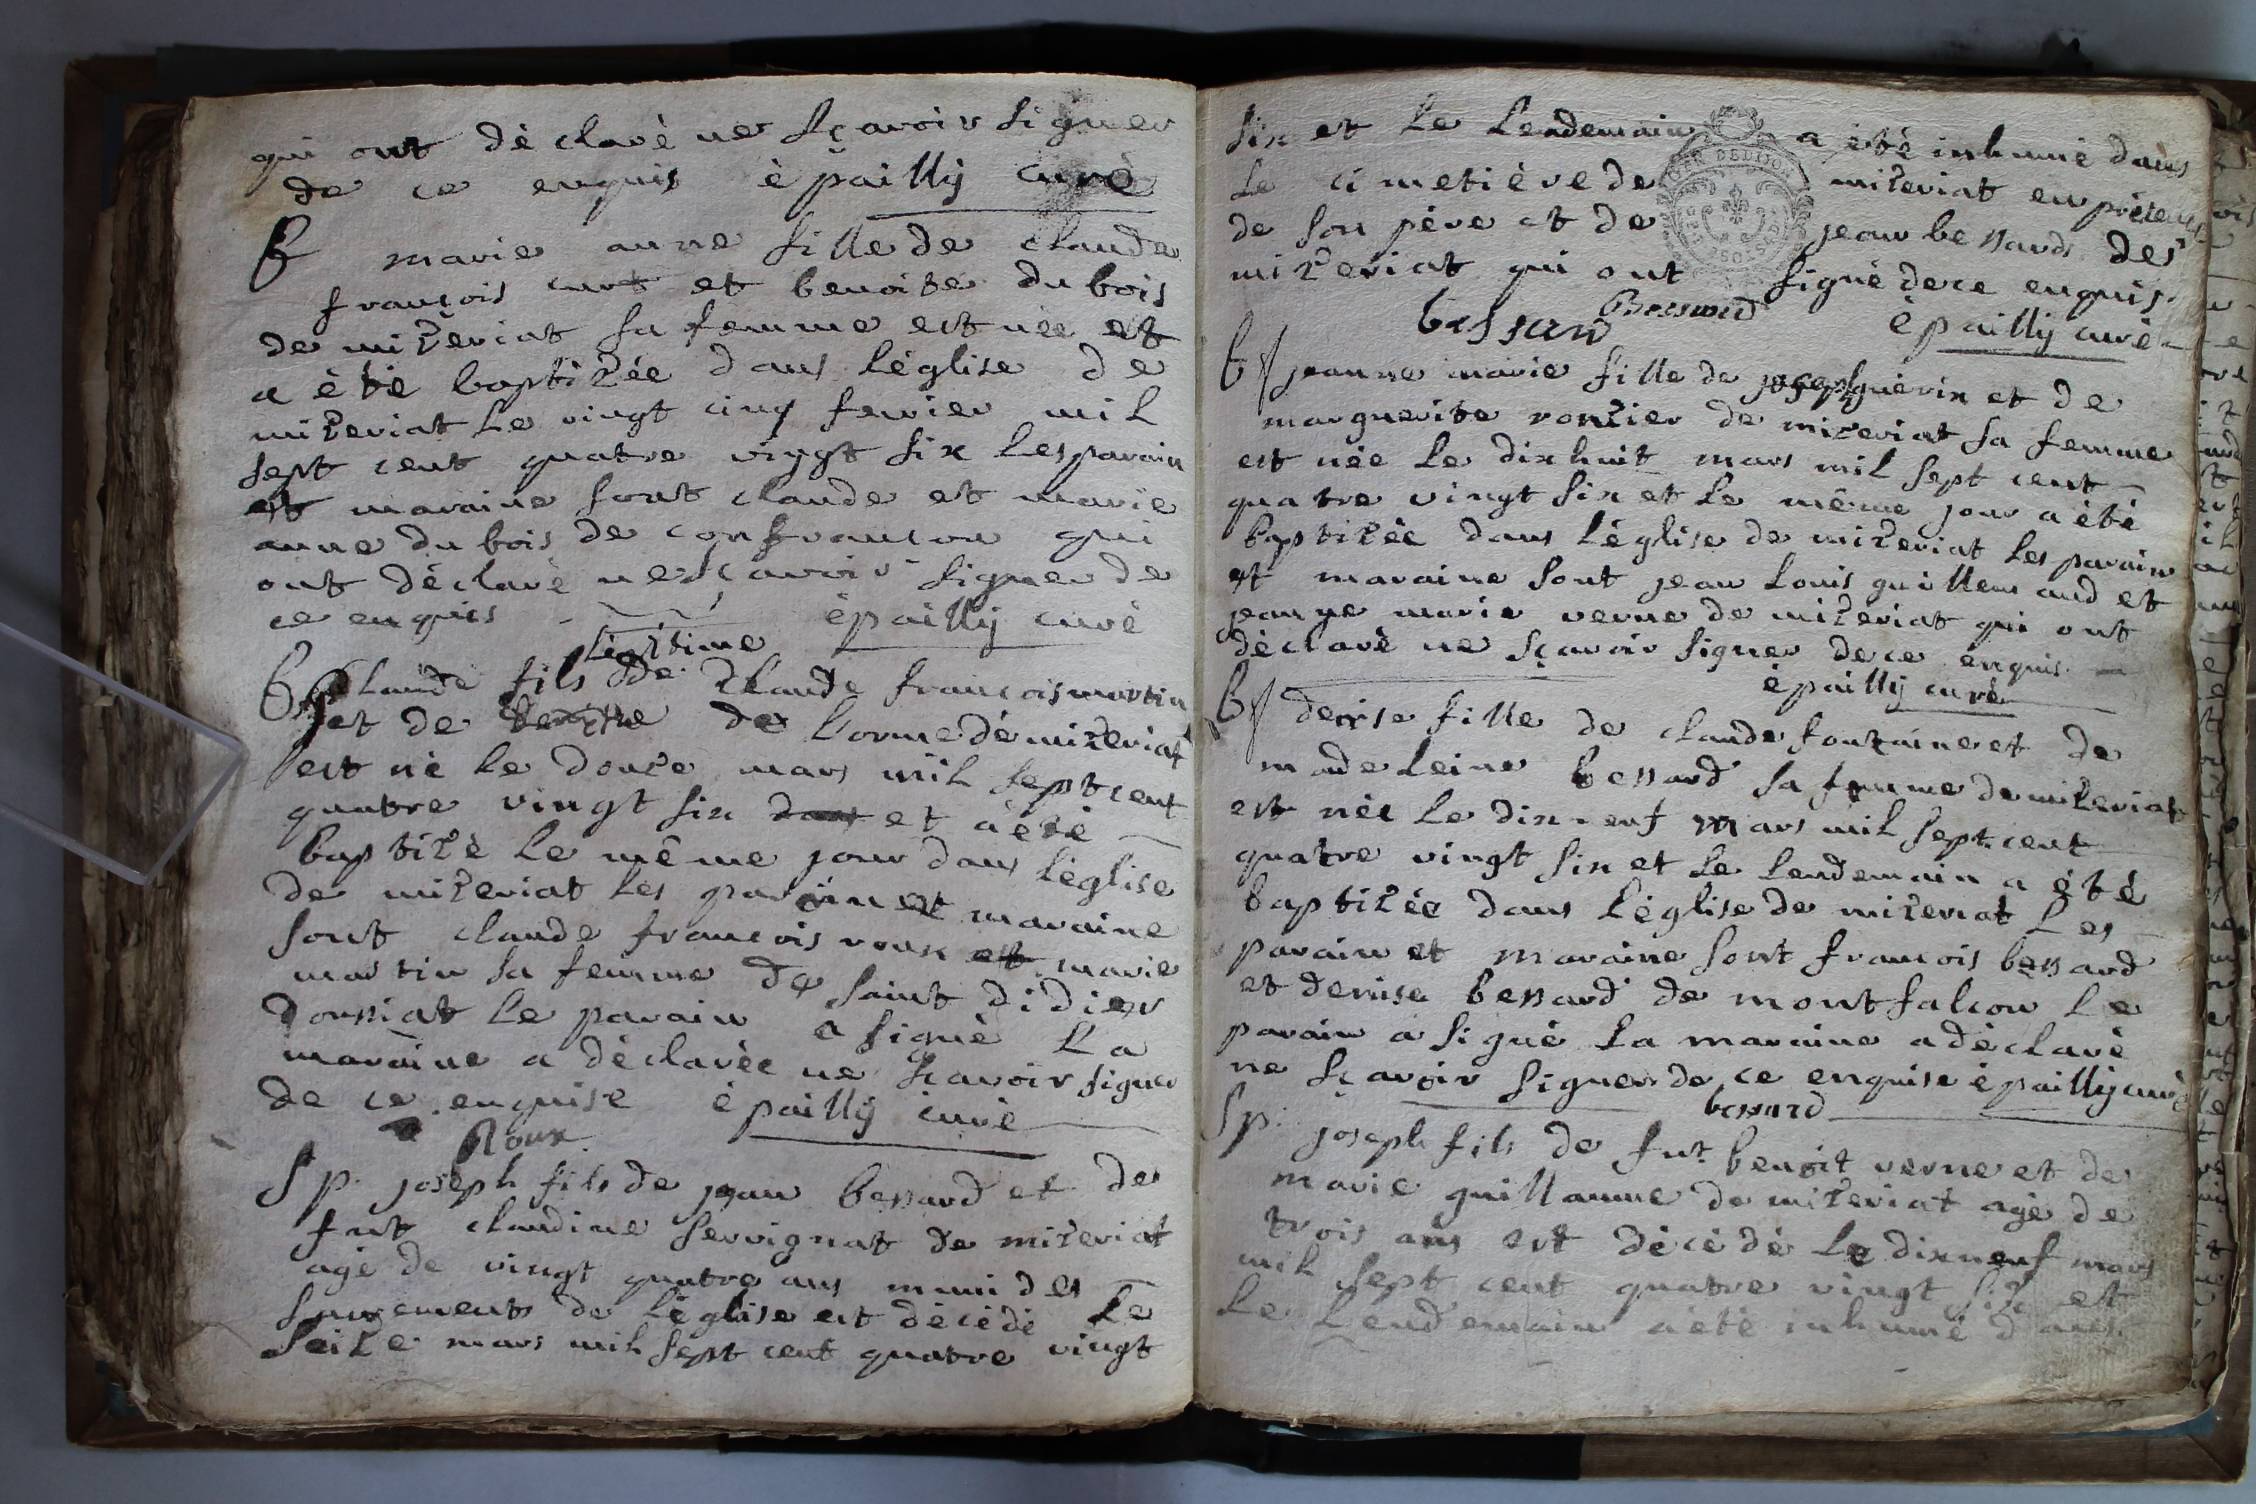 qui ont déclaré ne sçavoir signer
de ce enquis épailly curé
B marie anne fille de claude
françois curt et benoite du bois
de mizeriat sa femme est née et
a été baptizée dans l'église de
mizeriat le vingt cinq fevrier mil
sept cent quatre vingt six les parain
et maraine sont claude et marie
anne du bois de confrançon qui
ont déclaré ne sçavoir signer de
ce enquis épailly curé
légitime
B claude fils de claude françois martin
et de de lorme de mizeriat
est né le douze mars mil sept cent
quatre vingt six dans et a été
baptizé le même jour dans l'église
de mizeriat les parain et maraine
sont claude françois roux et marie
martin sa femme de saint didier
doussiat le parain a signé la
maraine a déclarée ne sçavoir signer
de ce enquise épailly curé
Roux
Sp. joseph fils de jean bessard et de
fut claudine servignat de mizeriat
agé de vingt quatre ans muni des
sacrements de l'église est décédé le
seize mars mil sept cent quatre vingt
six et le lendemain a été inhumé dans
le cimetière de mizeriat en présence
de son père et de jean bessard de
mizeriat qui ont signé de ce enquis
bessard bressard épailly curé
B jeanne marie fille de joseph guérin et de
marguerite rontier de mizeriat sa femme
est née le dix huit mars mil sept cent
quatre vingt six et le même jour a été
baptizée dans l'église de mizeriat les parain
et maraine sont jean louis guillemaud et
jeanne marie verne de mizeriat qui ont
déclaré ne sçavoir signer de ce enquis
épailly curé
B denise fille de claude fontaine et de
madeleine bessard sa femme de mizeriat
est née le dix neuf mars mil sept cent
quatre vingt six et le lendemain a été
baptizée dans l'église de mizeriat les
parain et maraine sont françois bessard
et denise bessard de montfalcon le
parain a signé la maraine a déclaré
ne sçavoir signer de ce enquise épailly curé
bessard
Sp. joseph fils de fut benoit verne et de
marie guillaume de mizeriat agé de
trois ans est décédé le dix neuf mars
mil sept cent quatre vingt six et
le lendemain a été inhumé dans